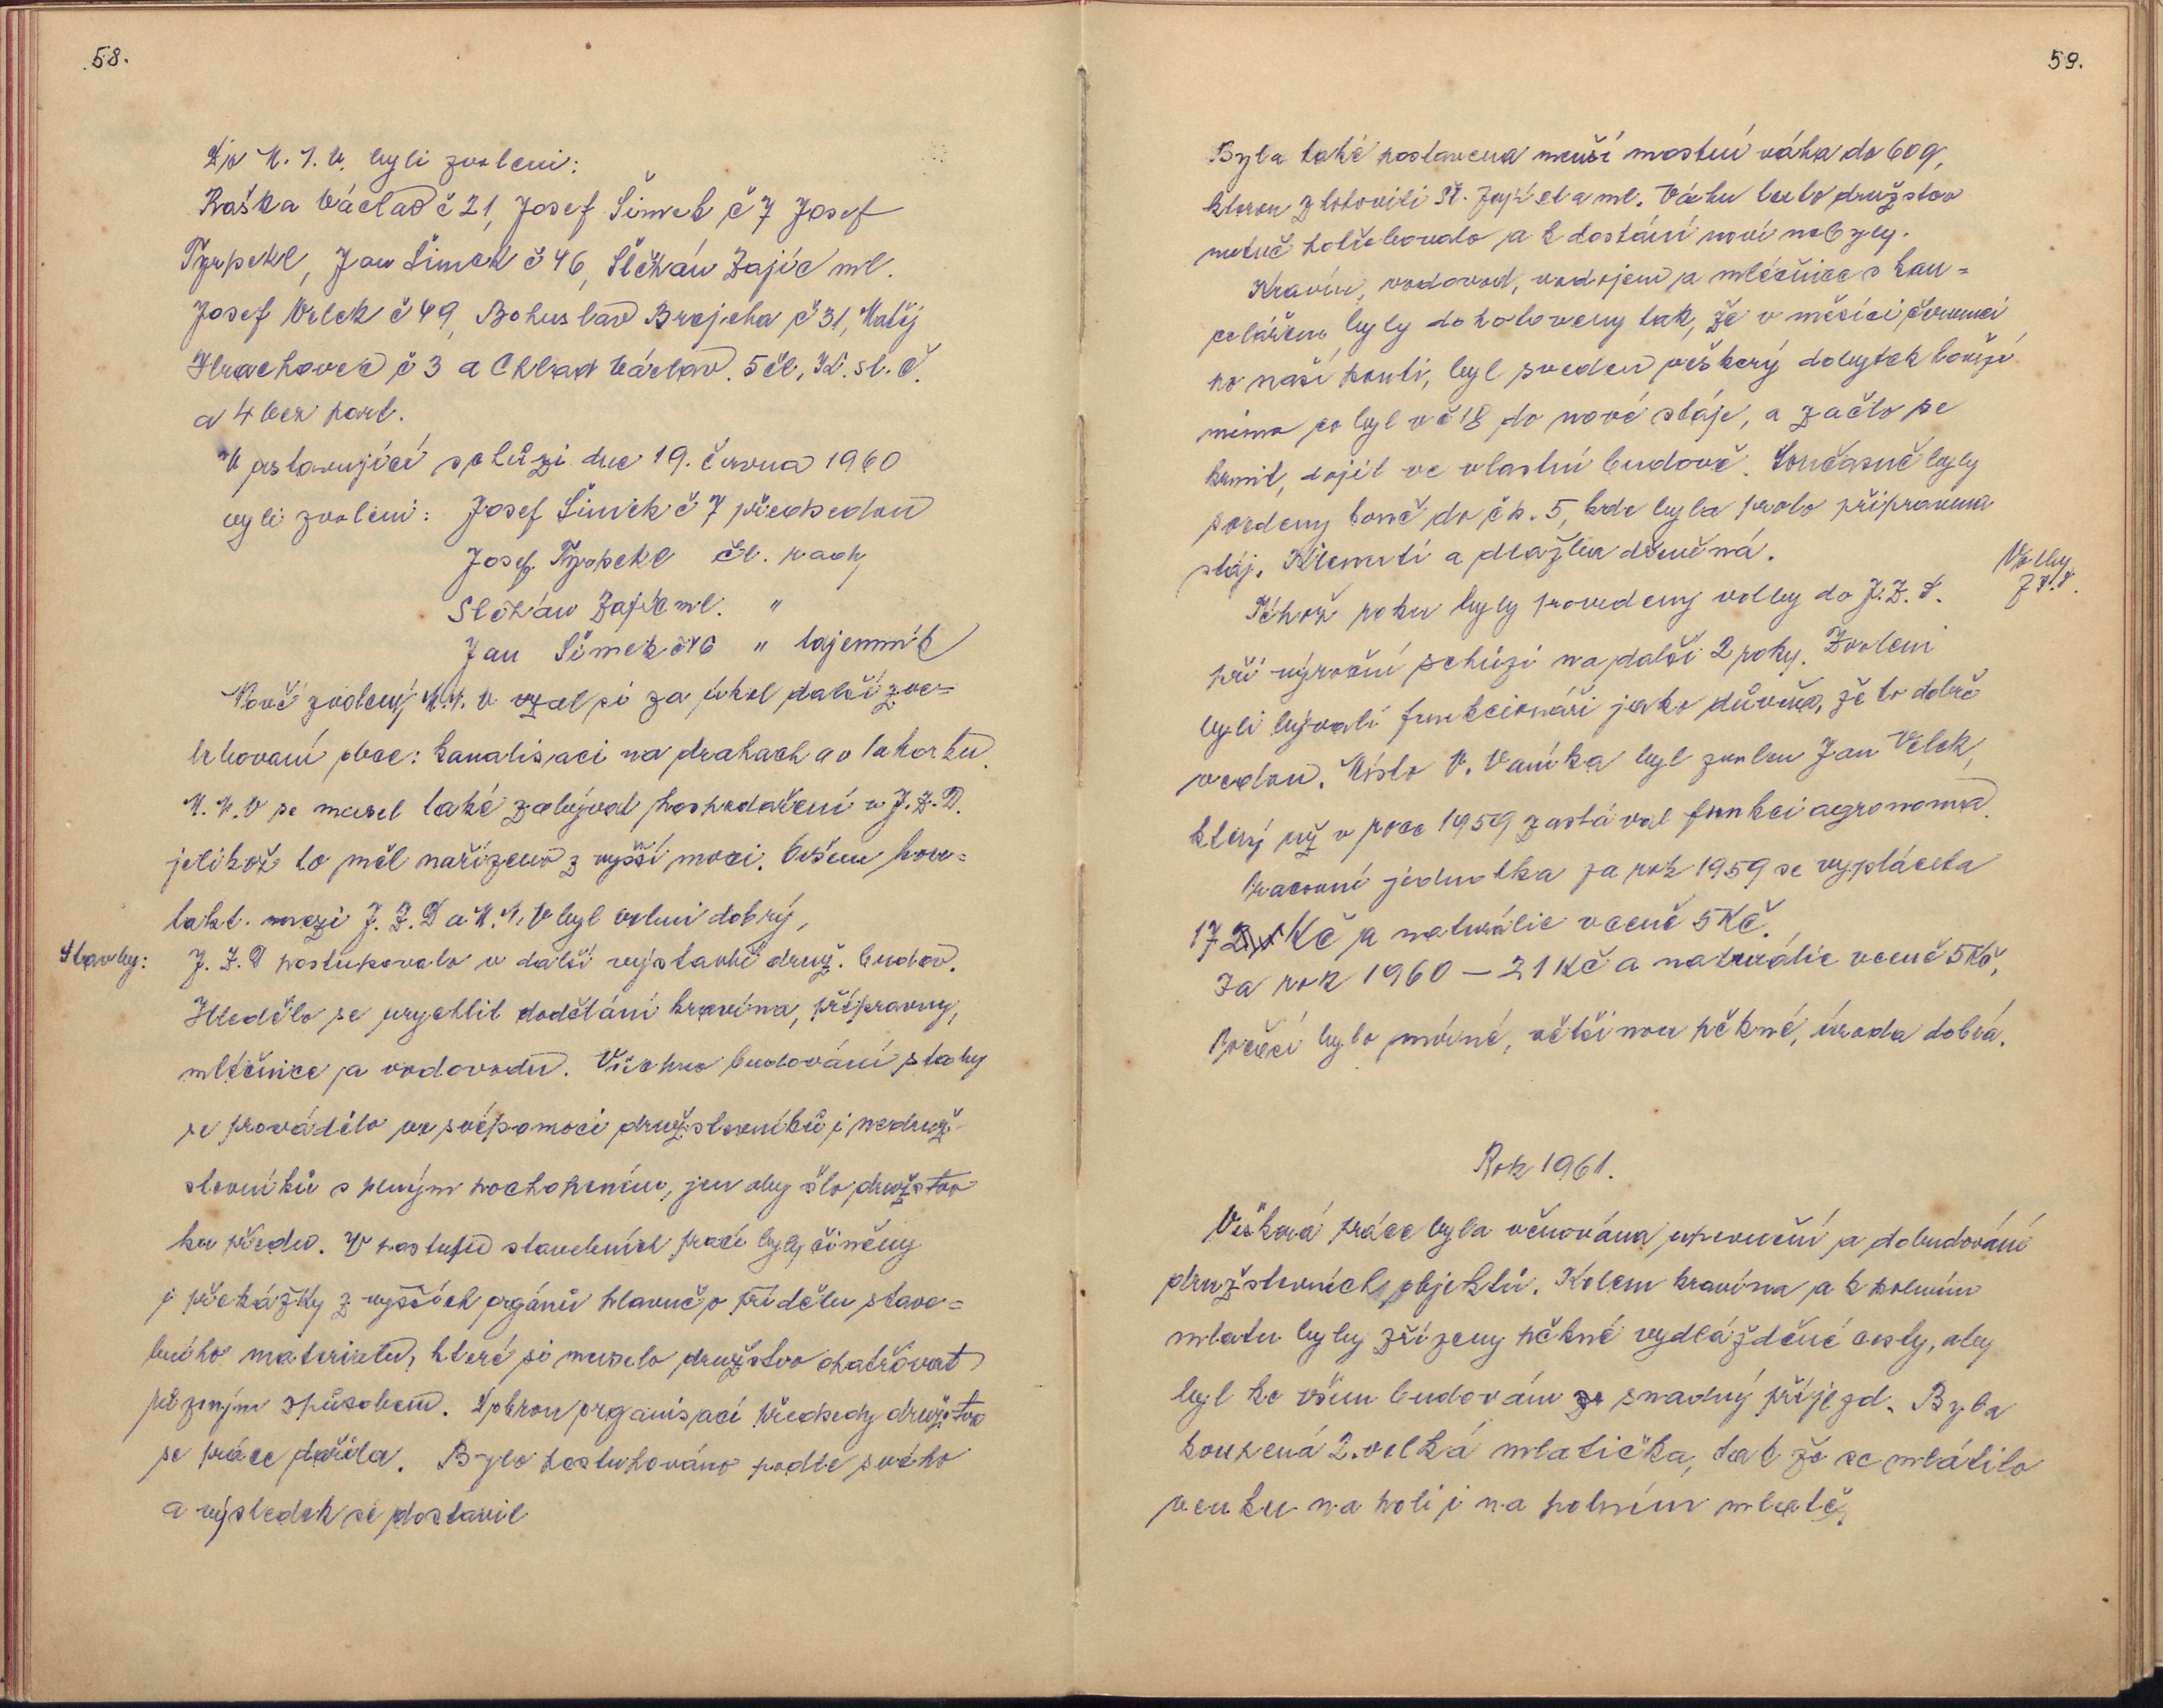 58.
Do M. N. V. byli zvoleni:
Raška Václav č 21, Josef Šimek č 7 Josef
Tyrpekl, Jan Šimek č 46, Štěpán Zajíc ml.
Josef Vlček č 49, Bohuslav Brejcha č 31, Matěj
Hrachovec č 3 a Chlad Václav. 5 čl. K. st. č.
a 4 bez part.
V ustavující schůzi dne 19. června 1960
byli zvoleni: Josef Šimek č 7 předsedou
Josef Tyrpekl čl. rady
Štěpán Zajíc ml. "
Jan Šimek č 46 " tajemník
Nově zvolený M.N.V vzal si za úkol další zve=
lebování obce: kanalisaci na drahách a v lahorku.
M.N.V se musel také zabývat hospodaření v J.Z.D.
jelikož to měl nařízeno z vyšší moci. Ovšem kon=
takt mezi J.Z.D a M.N.V byl velmi dobrý,
Stavby: J.Z.D postupovalo v další výstavbě druž. budov.
Hledělo se urychlit dodělání kravína, přípravny,
mléčnice a vodovodu. Všechno budování stavby
se provádělo ve svépomoci družstevníků i nedruž-
stevníků s plným pochopením, jen aby šlo družstvo
ku předu. V postupu stavebních prací byly činěny
i překážky z vyšších orgánů hlavně o přídělu stave=
bního materialu, které si muselo družstvo opatřovat
různým způsobem. Dobrou organisací předsedy družstva
se práce dařila. Bylo postupováno podle svého
a výsledek se dostavil
59.
Byla také postavena menší mostní váha do 60 q,
kterou zhotovili Št. Zajíc st a ml. Váhu tuto družstvo
nutně potřebovalo a k dostání nové nebyly.
Kravín, vodovod, vodojem a mléčnice s kan=
celářem byly dohotoveny tak, že v měsíci červenci
po naší pouti, byl sveden veškerý dobytek hovězí
mimo co byl v č 18 do nové stáje, a začlo se
krmit, dojit ve vlastní budově. Současně byly
svedeny koně do čp. 5, kde byla proto připravena
stáj. Klenutí a dlažba dřevěná.
Volby
J.Z.D.
Téhož roku byly provedeny volby do J.Z.D.
při výroční schůzi na další 2 roky. Zvoleni
byli bývalí funkcionáři jako důvěra, že to dobře
vedou. Místo V. Vaníka byl zvolen Jan Vlček,
který již v roce 1959 zastával funkci agronoma.
Pracovní jednotka za rok 1959 se vyplácela
17 Kč a naturálie v ceně 5 Kč.
Za rok 1960 – 21 Kč a naturálie v ceně 5 Kč,
Počasí bylo mírné, většinou pěkné, úroda dobrá.
Rok 1961.
Veškerá práce byla věnována upevnění a dobudování
družstevních objektů. Kolem kravína a k polním
mlatu byly zřízeny pěkné vydlážděné cesty, aby
byl ke všem budovám snadný příjezd. Byla
koupená 2. velká mlatička, tak že se mlátilo
venku na poli i na polním mlatě.